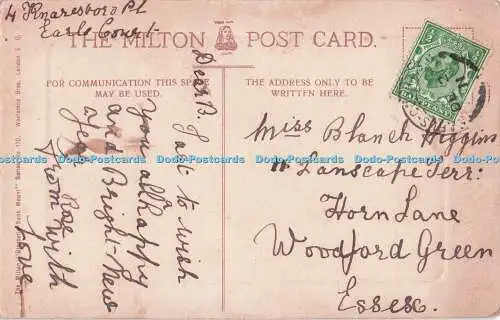 4 Knaresboro Pl
Earls Court
THE MILTON POST CARD.
FOR COMMUNICATION THIS SPACE
MAY BE USED.
THE ADDRESS ONLY TO BE
WRITTEN HERE.
Dear B. Just to wish
you all happy
and Bright New
Year
from
with
love
Miss Blanch Higgins
11 Lanscape Terr:
Horn Lane
Woodford Green
Essex.
Woolstone Bros., London E.C.
Dodo-Postcards Dodo-Postcards Dodo-Postcards Dodo-Postcards Dodo-Postcards Dodo-Postcards